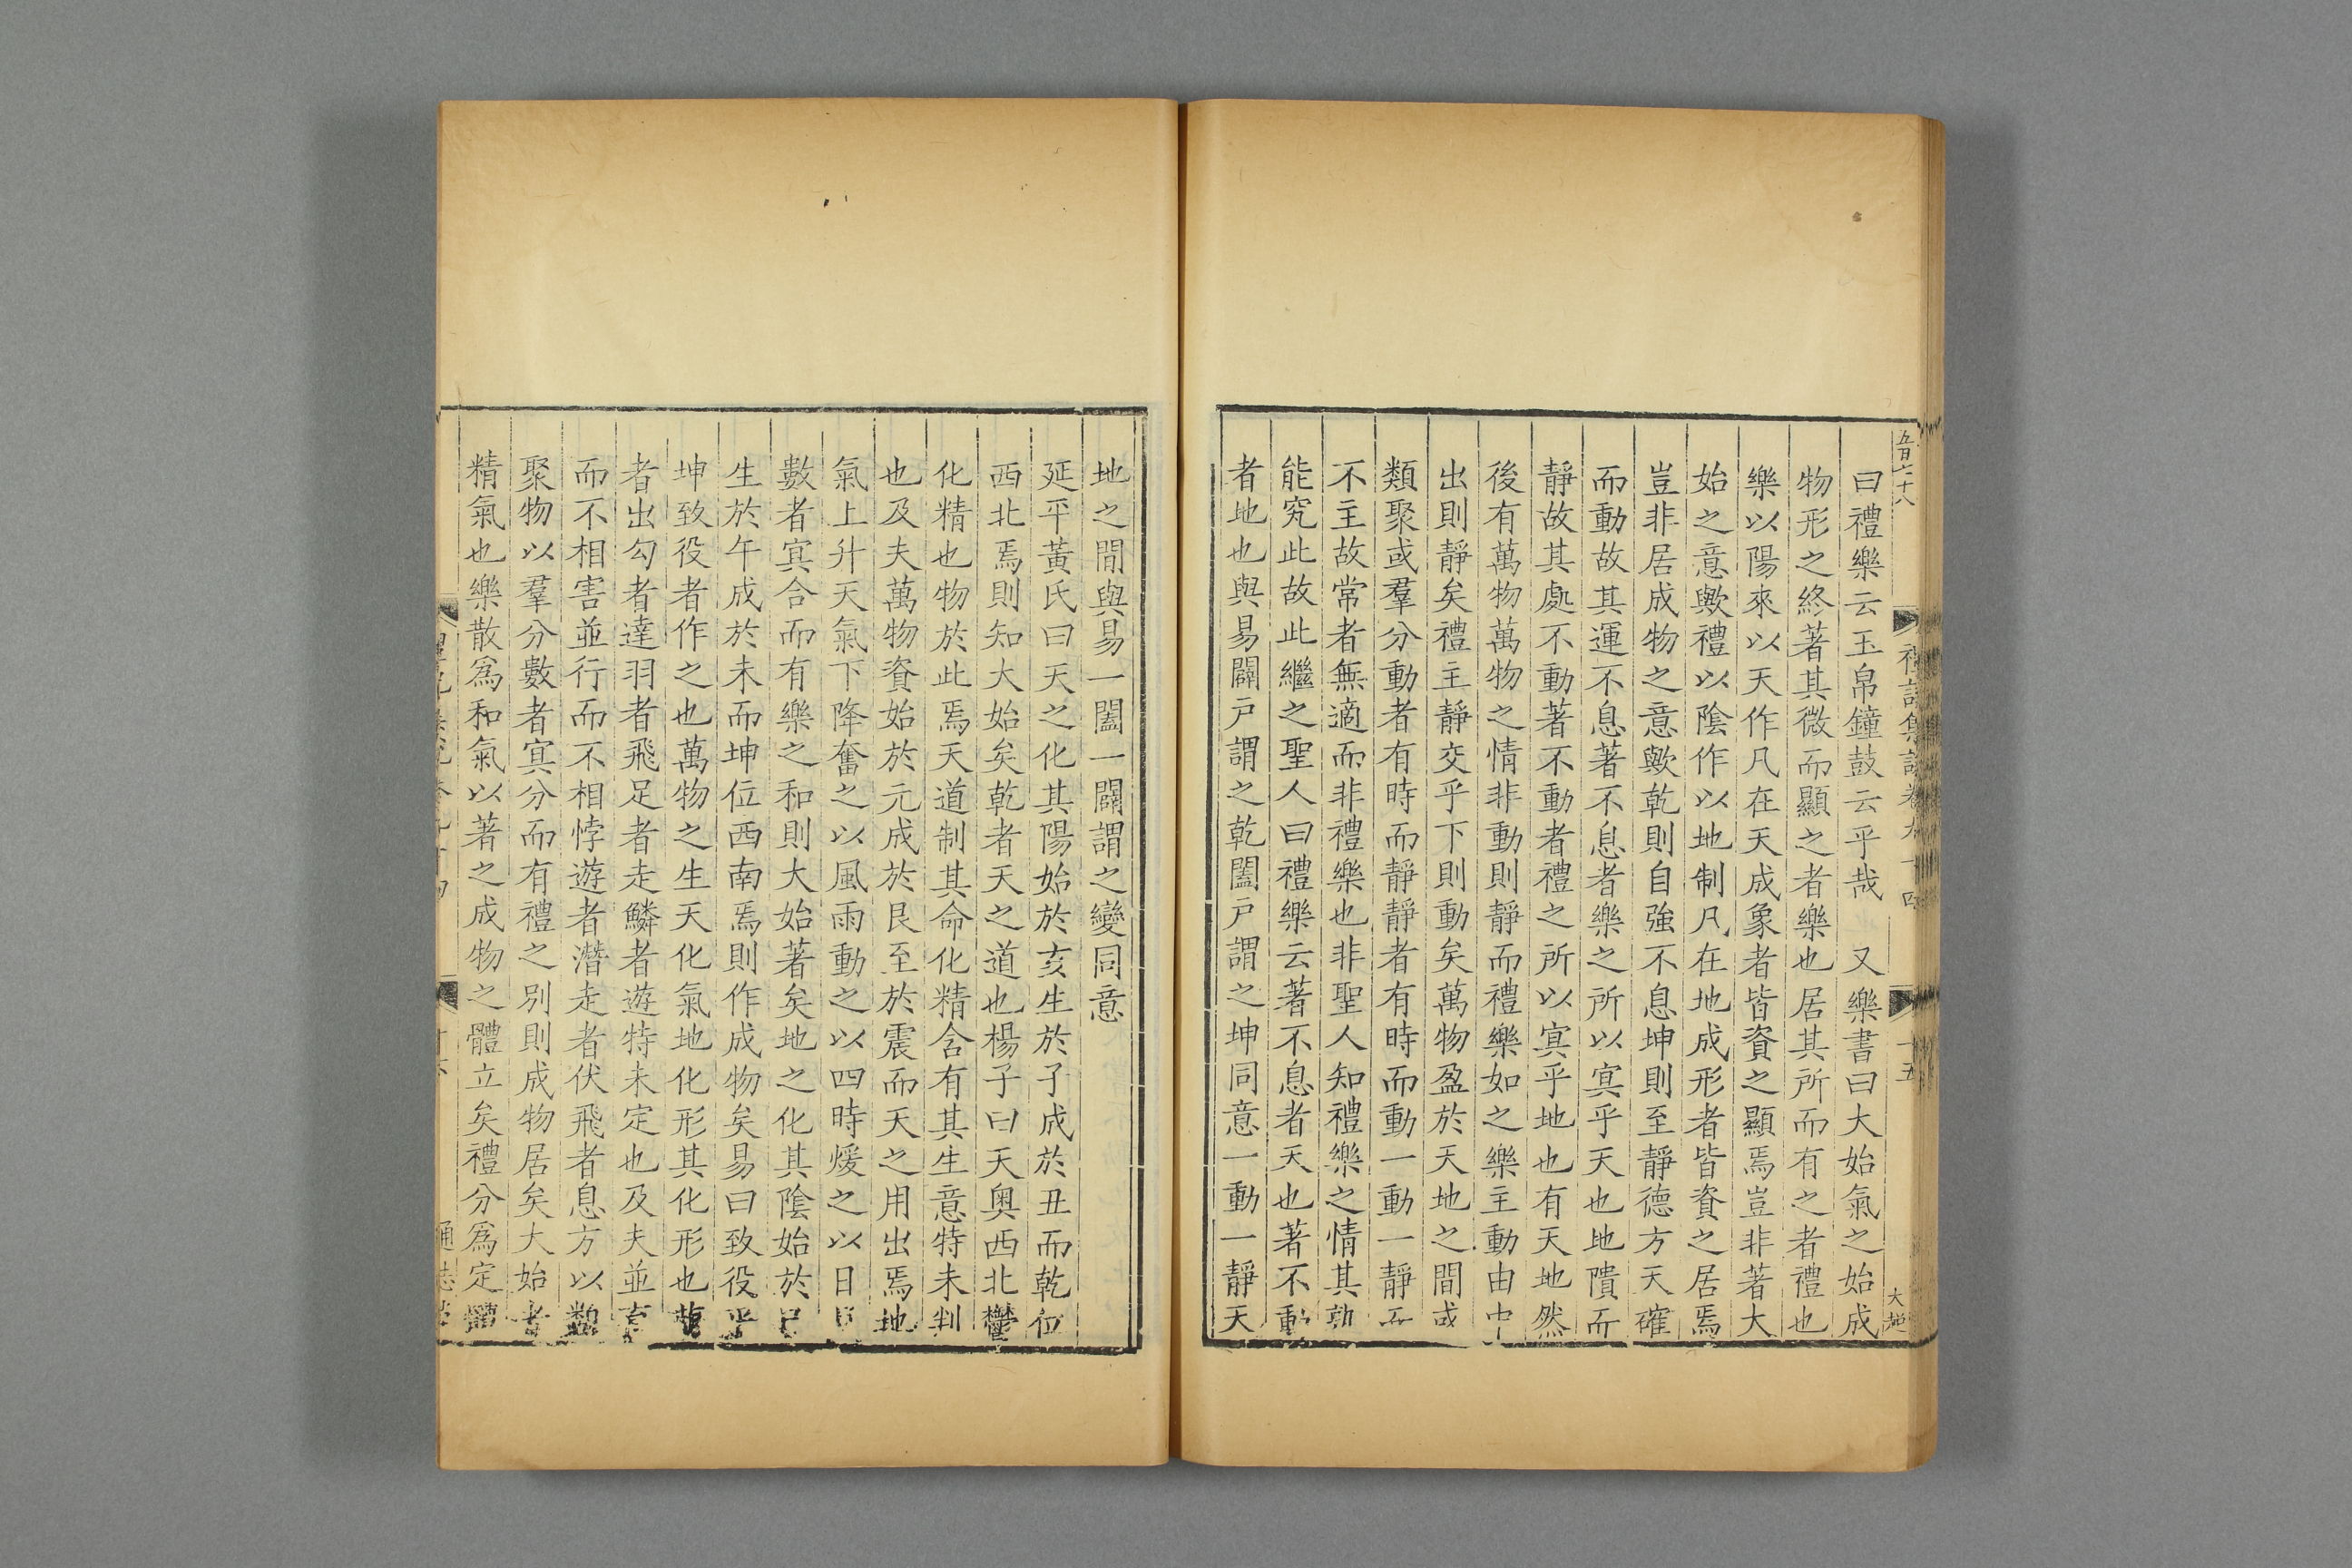 五百六十八
禮記集說卷九十四
十五
大㐌
曰禮樂云玉帛鐘鼓云乎哉　又樂書曰大始氣之始成
物形之終著其微而顯之者樂也居其所而有之者禮也
樂以陽來以天作凡在天成象者皆資之顯焉豈非著大
始之意歟禮以陰作以地制凡在地成形者皆資之居焉
豈非居成物之意歟乾則自強不息坤則至靜德方天確
而動故其運不息著不息者樂之所以寘乎天也地隤而
靜故其處不動著不動者禮之所以寘乎地也有天地然
後有萬物萬物之情非動則靜而禮樂如之樂主動由中
出則靜矣禮主靜交乎下則動矣萬物盈於天地之間或
類聚或羣分動者有時而靜靜者有時而動一動一靜而
不主故常者無適而非禮樂也非聖人知禮樂之情其孰
能究此故此繼之聖人曰禮樂云著不息者天也著不動
者地也與易闢戸謂之乾闔戸謂之坤同意一動一靜天
地之間與易一闔一闢謂之變同意
延平黃氏曰天之化其陽始於亥生於子成於丑而乾位
西北焉則知大始矣乾者天之道也楊子曰天奧西北鬱
化精也物於此焉天道制其命化精含有其生意特未判
也及夫萬物資始於元成於艮至於震而天之用出焉地
氣上升天氣下降奮之以風雨動之以四時煖之以日月
數者寘合而有樂之和則大始著矣地之化其陰始於巳
生於午成於未而坤位西南焉則作成物矣易曰致役乎
坤致役者作之也萬物之生天化氣地化形其化形也萌
者出勾者達羽者飛足者走鱗者遊特未定也及夫並育
而不相害並行而不相悖遊者潛走者伏飛者息方以類
聚物以羣分數者寘分而有禮之別則成物居矣大始者
精氣也樂散爲和氣以著之成物之體立矣禮分爲定體